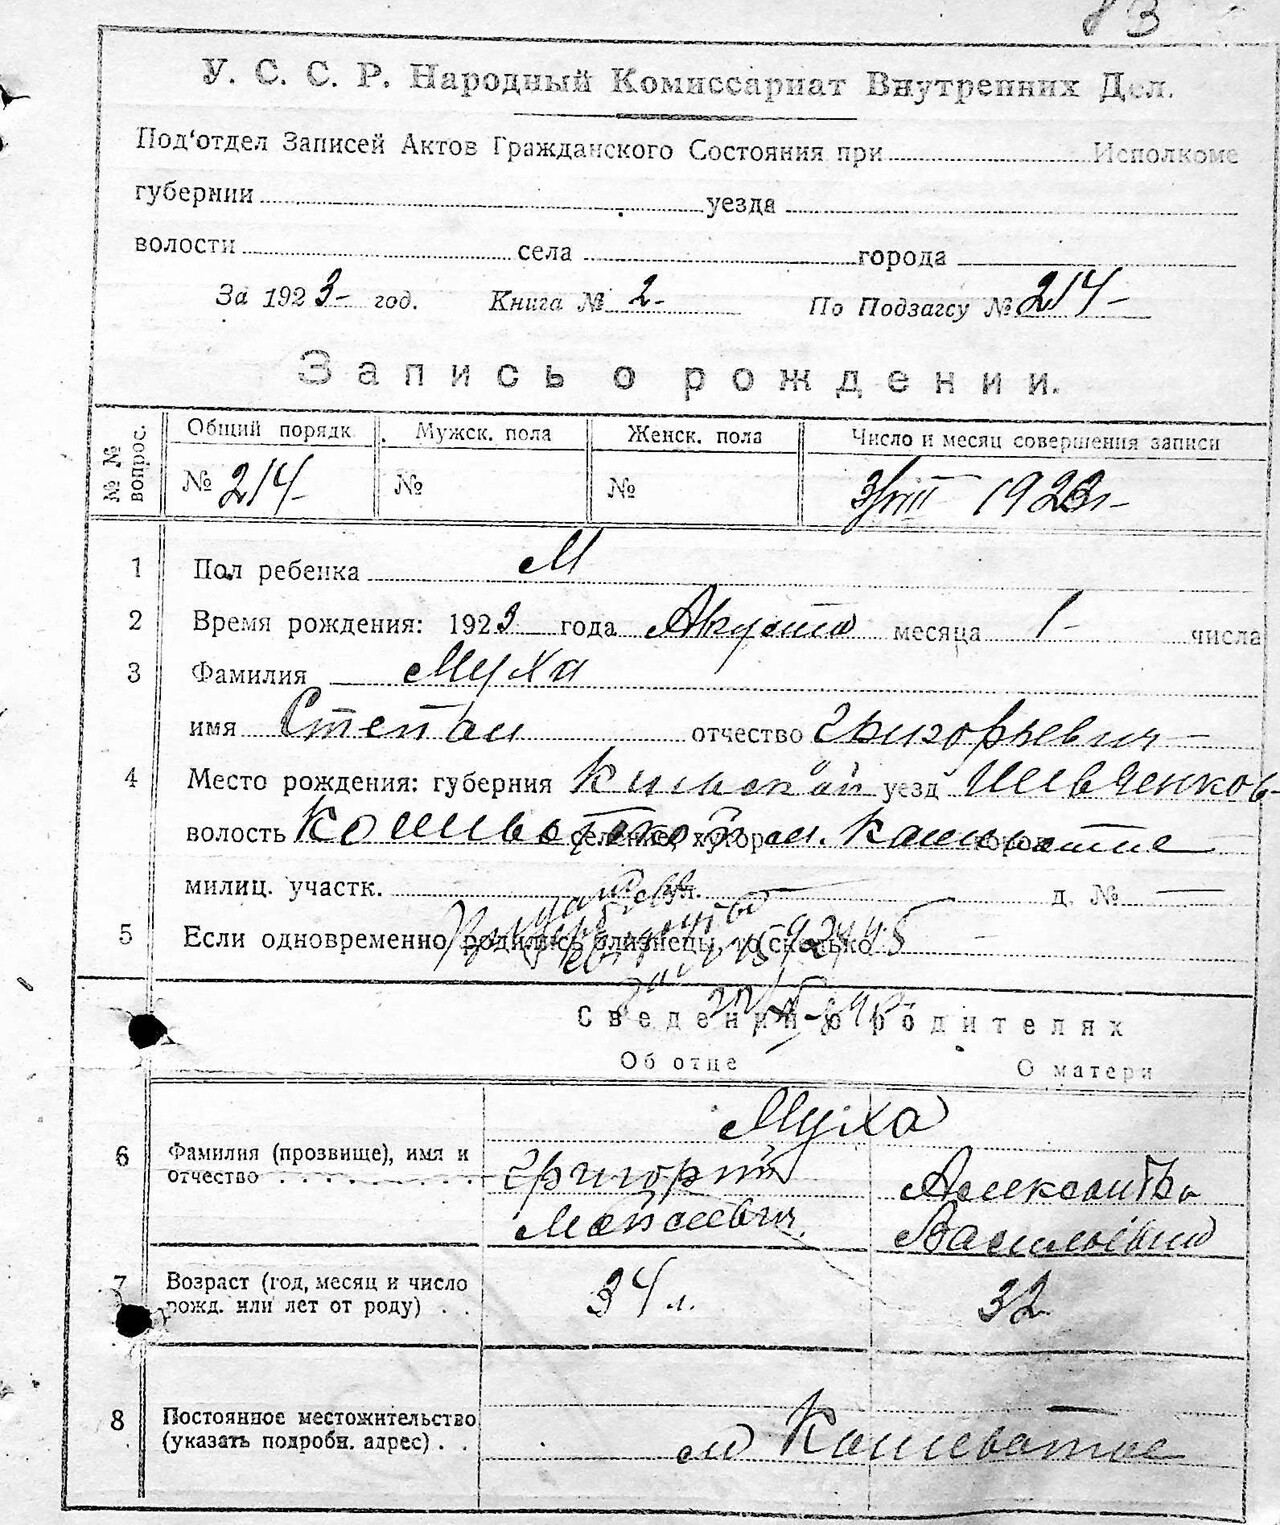 83
У. С. С. Р. Народный Комиссариат Внутренних Дел.
Под'отдел Записей Актов Гражданского Состояния при Исполкоме
губернии уезда
волости села города
За 1923- год. Книга № 2- По Подзагсу № 214-
Запись о рождении.
№ № вопрос. Общий порядк. Мужск. пола Женск. пола Число и месяц совершения записи
№ 214- № № 3/VIII 1923г-
1 Пол ребенка М
2 Время рождения: 1923 года Августа месяца 1- числа
3 Фамилия Муха
имя Степан отчество Григорьевич-
4 Место рождения: губерния Киевской уезд Шевченков-
волость Кошеватской селение, хутор м. Кошеватое город
милиц. участк. ул. д. №
5 Если одновременно родились близнецы, то сколько
Сведения о родителях
Об отце О матери
Муха
6 Фамилия (прозвище), имя и отчество Григорий Моисеевич Александра Васильевна
7 Возраст (год, месяц и число рожд. или лет от роду) . . 34 л. 32
8 Постоянное местожительство (указать подробн. адрес) . . м Кошеватое